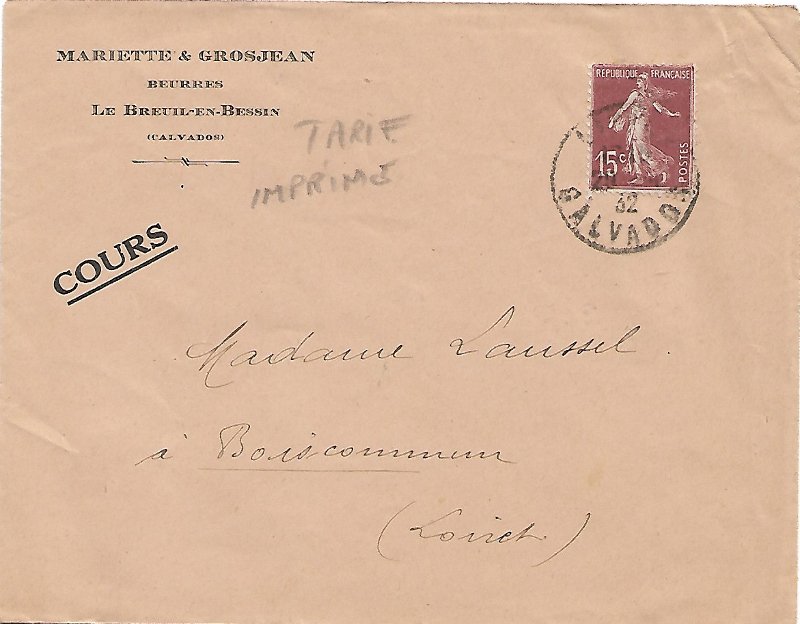 MARIETTE & GROSJEAN
BEURRES
LE BREUIL-EN-BESSIN
(CALVADOS)
TARIF
IMPRIMÉ
RÉPUBLIQUE FRANÇAISE
15 c
POSTES
32
CALVADOS
COURS
Madame Laussel
à Boiscommun
(Loiret)